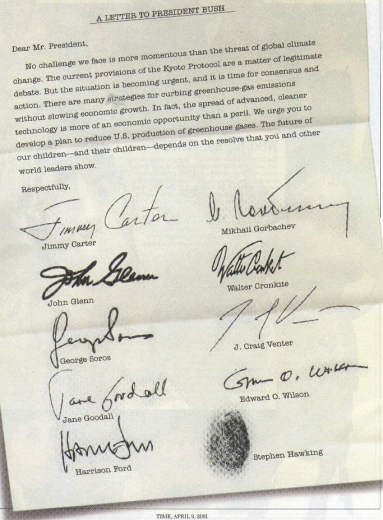 A LETTER TO PRESIDENT BUSH
Dear Mr. President,
No challenge we face is more momentous than the threat of global climate
change. The current provisions of the Kyoto Protocol are a matter of legitimate
debate. But the situation is becoming urgent, and it is time for consensus and
action. There are many strategies for curbing greenhouse-gas emissions
without slowing economic growth. In fact, the spread of advanced, cleaner
technology is more of an economic opportunity than a peril. We urge you to
develop a plan to reduce U.S. production of greenhouse gases. The future of
our children—and their children—depends on the resolve that you and other
world leaders show.
Respectfully,
Jimmy Carter
Jimmy Carter
Mikhail Gorbachev
John Glenn
John Glenn
Walter Cronkite
Walter Cronkite
George Soros
George Soros
J. Craig Venter
Jane Goodall
Jane Goodall
Edward O. Wilson
Harrison Ford
Stephen Hawking
TIME, APRIL 9, 2001